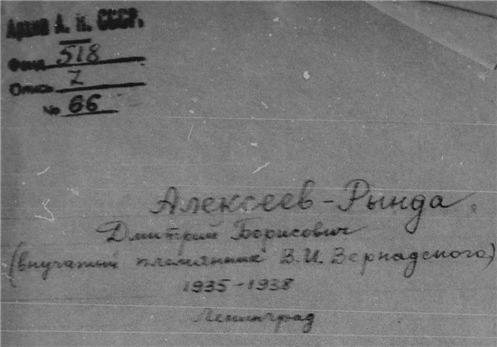 Архив А. Н. СССР.
Фонд 518
Опись 7
№ 66
Алексеев-Рында
Дмитрий Борисович
(внучатый племянник В.И. Вернадского)
1935-1938
Ленинград